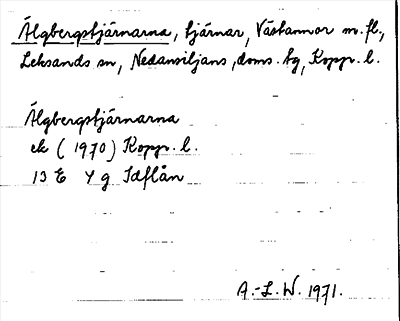 Älgbergstjärnarna, tjärnar, Västannor m.fl.,
Leksands sn, Nedansiljans, doms. tg, Kopp. l.
Älgbergstjärnarna
ek (1970) Kopp. l.
13 E Y g Idflån
A.-L. W. 1971.